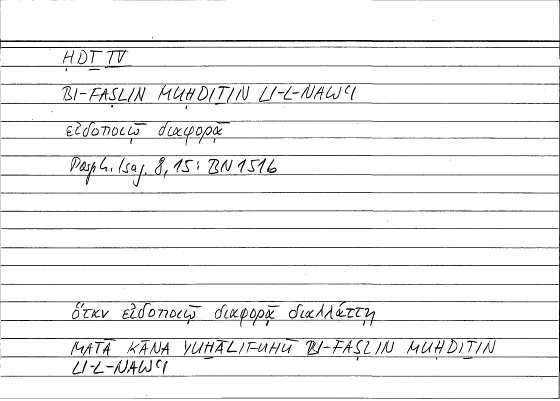 ḤDṮ IV
BI-FAṢLIN MUḤDIṮIN LI-L-NAWʿI
εἰδοποιῷ διαφορᾷ
Porph. Isag. 8, 15: BN 151b
ὅταν εἰδοποιῷ διαφορᾷ διαλλάττῃ
MATĀ KĀNA YUḪĀLIFUHŪ BI-FAṢLIN MUḤDIṮIN
LI-L-NAWʿI